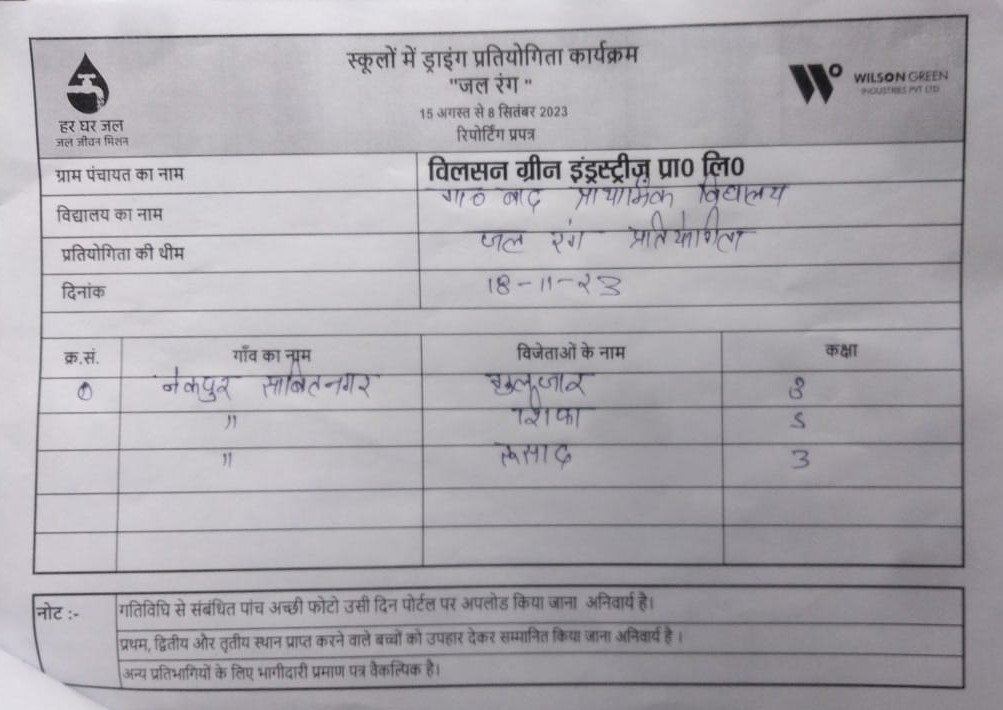 स्कूलों में ड्राइंग प्रतियोगिता कार्यक्रम
"जल रंग "
15 अगस्त से 8 सितंबर 2023
रिपोर्टिंग प्रपत्र
हर घर जल
जल जीवन मिशन
WILSON GREEN
INDUSTRIES PVT LTD
ग्राम पंचायत का नाम विलसन ग्रीन इंड्रस्ट्रीज़ प्रा० लि०
विद्यालय का नाम प्राथमिक विद्यालय
प्रतियोगिता की थीम जल रंग प्रतियोगिता
दिनांक 18-11-23
क्र.सं. गाँव का नाम विजेताओं के नाम कक्षा
① नेकपुर साबितनगर गुलजार
" 5
" 3
नोट :- गतिविधि से संबंधित पांच अच्छी फोटो उसी दिन पोर्टल पर अपलोड किया जाना अनिवार्य है।
प्रथम, द्वितीय और तृतीय स्थान प्राप्त करने वाले बच्चों को उपहार देकर सम्मानित किया जाना अनिवार्य है ।
अन्य प्रतिभागियों के लिए भागीदारी प्रमाण पत्र वैकल्पिक है।